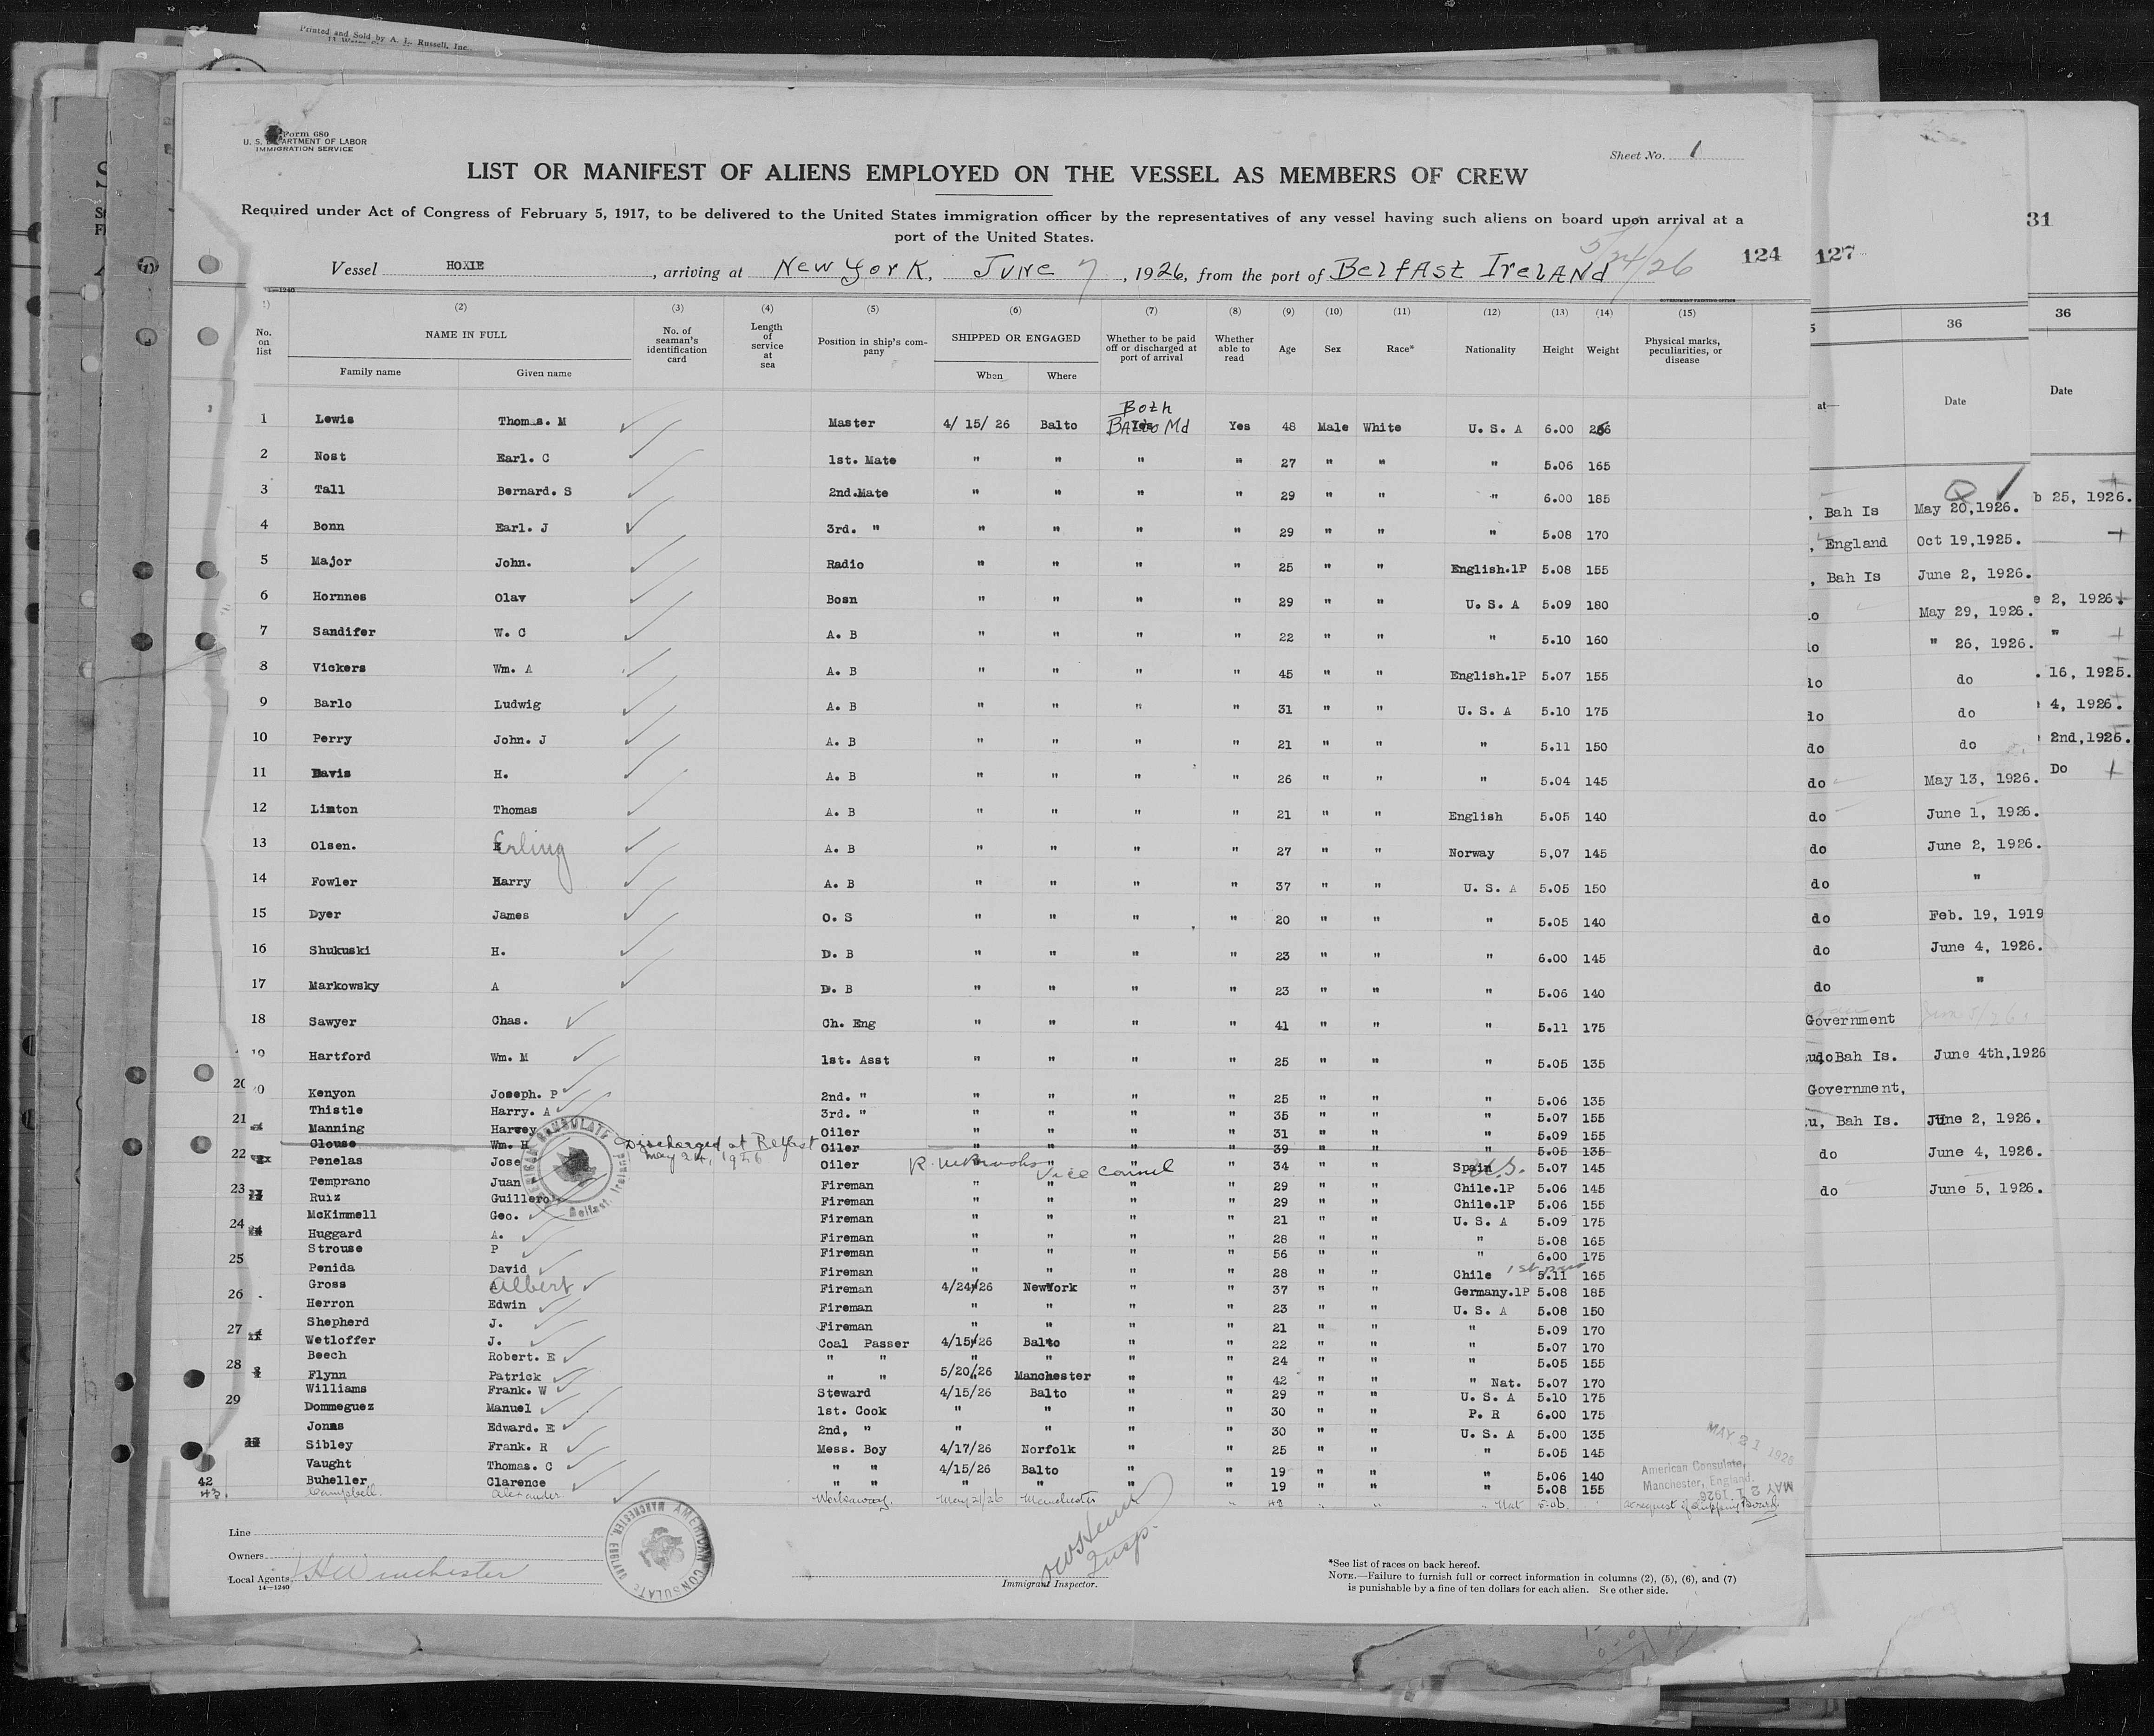 Printed and Sold by A. L. Russell, Inc.
Form 680
U. S. DEPARTMENT OF LABOR
IMMIGRATION SERVICE
Sheet No. 1
LIST OR MANIFEST OF ALIENS EMPLOYED ON THE VESSEL AS MEMBERS OF CREW
Required under Act of Congress of February 5, 1917, to be delivered to the United States immigration officer by the representatives of any vessel having such aliens on board upon arrival at a
port of the United States.
5/24/26
124 127 31
Vessel HOXIE, arriving at New York, June 7, 1926, from the port of Belfast Ireland
14-1240
(2) (3) (4) (5) (6) (7) (8) (9) (10) (11) (12) (13) (14) (15)
No. on list NAME IN FULL Family name Given name No. of seaman's identification card Length of service at sea Position in ship's company SHIPPED OR ENGAGED When Where Whether to be paid off or discharged at port of arrival Whether able to read Age Sex Race* Nationality Height Weight Physical marks, peculiarities, or disease
Both
1 Lewis Thomas. M Master 4/ 15/ 26 Balto Balto Md Yes 48 Male White U. S. A 6.00
2 Nost Earl. C 1st. Mate " " " " 27 " " " 5.06 165
3 Tall Bernard. S 2nd.Mate " " " " 29 " " " 6.00 185
4 Bonn Earl. J 3rd. " " " " " 29 " " " 5.08 170
5 Major John. Radio " " " " 25 " " English.1P 5.08 155
6 Hornnes Olav Bosn " " " " 29 " " U. S. A 5.09 180
7 Sandifer W. C A. B " " " " 22 " " " 5.10 160
8 Vickers Wm. A A. B " " " " 45 " " English.1P 5.07 155
9 Barlo Ludwig A. B " " " " 31 " " U. S. A 5.10 175
10 Perry John. J A. B " " " " 21 " " " 5.11 150
11 Davis H. A. B " " " " 26 " " " 5.04 145
12 Linton Thomas A. B " " " " 21 " " English 5.05 140
13 Olsen. Erling A. B " " " " 27 " " Norway 5,07 145
14 Fowler Harry A. B " " " " 37 " " U. S. A 5.05 150
15 Dyer James O. S " " " " 20 " " " 5.05 140
16 Shukuski H. D. B " " " " 23 " " " 6.00 145
17 Markowsky A D. B " " " " 23 " " " 5.06 140
18 Sawyer Chas. Ch. Eng " " " " 41 " " " 5.11 175
19 Hartford Wm. M 1st. Asst " " " " 25 " " " 5.05 135
20 Kenyon Joseph. P 2nd. " " " " " 25 " " " 5.06 135
Thistle Harry. A 3rd. " " " " " 35 " " " 5.07 155
21 Manning Harvey Oiler " " " " 31 " " " 5.09 155
Clouse Wm. H Discharged at Belfast May 24, 1926 Oiler " " " " 39 " " " 5.05 135
22 Penelas Jose Oiler Vice Consul " " 34 " " Spain U.S. 5.07 145
Temprano Juan Fireman " " " " 29 " " Chile.1P 5.06 145
23 Ruiz Guillero Fireman " " " " 29 " " Chile.1P 5.06 155
McKimmell Geo. Fireman " " " " 21 " " U. S. A 5.09 175
24 Huggard A. Fireman " " " " 28 " " " 5.08 165
Strouse P Fireman " " " " 56 " " " 6.00 175
25 Penida David Fireman " " " " 28 " " Chile 5.11 165
Gross Albert Fireman 4/24/26 NewYork " " 37 " " Germany.1P 5.08 185
26 Herron Edwin Fireman " " " " 23 " " U. S. A 5.08 150
Shepherd J. Fireman " " " " 21 " " " 5.09 170
27 Wetloffer J. Coal Passer 4/15/26 Balto " " 22 " " " 5.07 170
Beech Robert. E " " " " " " 24 " " " 5.05 155
28 Flynn Patrick " " 5/20/26 Manchester " " 42 " " " Nat. 5.07 170
Williams Frank. W Steward 4/15/26 Balto " " 29 " " U. S. A 5.10 175
29 Dommeguez Manuel 1st. Cook " " " " 30 " " P. R 6.00 175
Jonas Edward. E 2nd, " " " " " 30 " " U. S. A 5.00 135
Sibley Frank. R Mess. Boy 4/17/26 Norfolk " " 25 " " " 5.05 145
Vaught Thomas. C " " 4/15/26 Balto " " 19 " " " 5.06 140
42 Buheller Clarence " " " " " " 19 " " " 5.08 155
43. Campbell. Alexander. Workaway. May 21/26 Manchester " 48 " " " Nat 5.06. at request of Shipping Board.
AMERICAN CONSULATE Belfast, Ireland
MAY 21 1926
American Consulate,
Manchester, England.
MAY 21 1926
AMERICAN CONSULATE MANCHESTER, ENGLAND
Line
Owners
Local Agents
14-1240
Insp.
Immigrant Inspector.
*See list of races on back hereof.
NOTE.—Failure to furnish full or correct information in columns (2), (5), (6), and (7)
is punishable by a fine of ten dollars for each alien. See other side.
36 36
at— Date Date
, Bah Is May 20,1926. b 25, 1926.
, England Oct 19,1925.
, Bah Is June 2, 1926.
May 29, 1926. e 2, 1926.
" 26, 1926. "
do . 16, 1925.
do 4, 1926.
do do 2nd,1926.
do May 13, 1926. Do
do June 1, 1926.
do June 2, 1926.
do "
do Feb. 19, 1919
do June 4, 1926.
do "
Government
Bah Is. June 4th,1926
Government,
u, Bah Is. June 2, 1926.
do June 4, 1926.
do June 5, 1926.